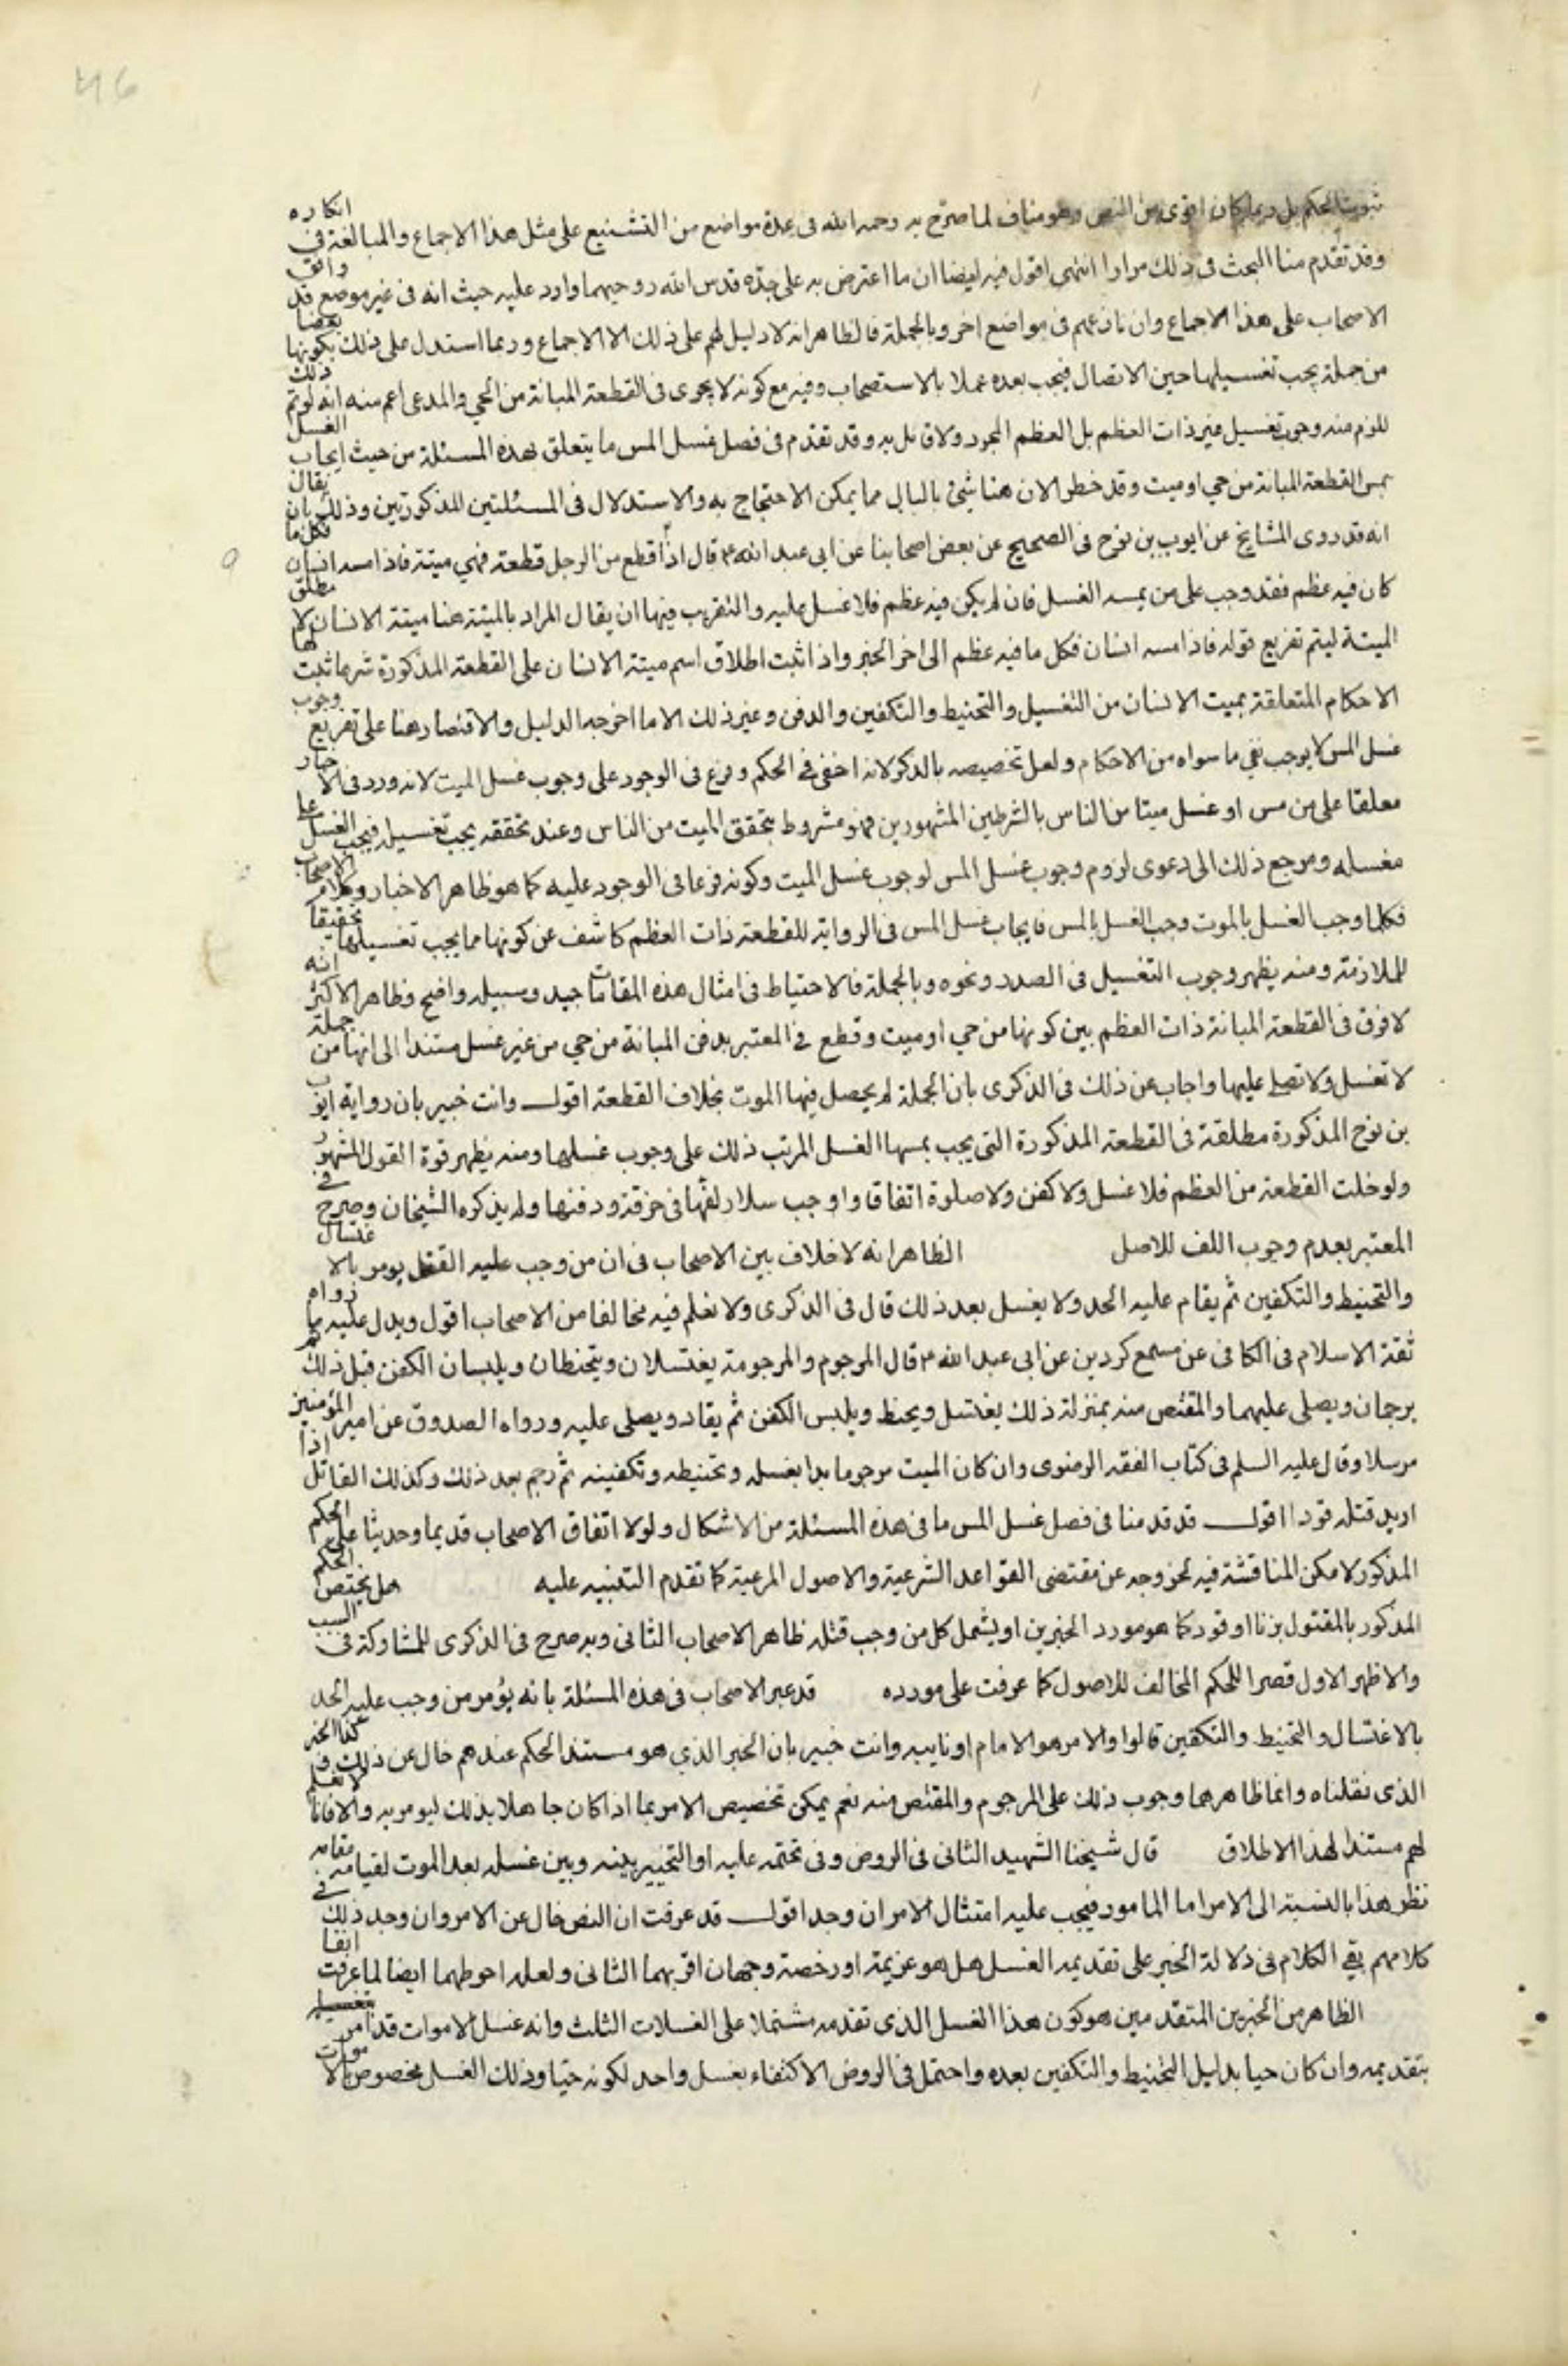 46
ثبوت الحكم بل ربما كان اقوى من النص وهو مناف لما صرح به رحمه الله في عدة مواضع من التشنيع على مثل هذا الاجماع والمبالغة في انكاره
وقد تقدم منا البحث في ذلك مرارا انتهى اقول فيه ايضا ان ما اعترض به على جده قدس الله روحيهما وارد عليه حيث انه في غير موضع قد وافق
الاصحاب على هذا الاجماع وان نازعهم في مواضع اخر وبالجملة فالظاهر انه لا دليل لهم على ذلك الا الاجماع وربما استدل على ذلك بكونها بعضا
من جملة يجب تغسيلها حين الاتصال فيجب بعده عملا بالاستصحاب وفيه مع كونه لا يجرى في القطعة المبانة من الحي والمدعى اعم منه انه لو تم ذلك
للزم منه وجوب تغسيل غير ذات العظم بل العظم المجرد ولا قائل به وقد تقدم في فصل غسل المس ما يتعلق بهذه المسئلة من حيث ايجاب الغسل
بمس القطعة المبانة من حي او ميت وقد خطر الان هنا شئ بالبال مما يمكن الاحتجاج به والاستدلال في المسئلتين المذكورتين وذلك بان يقال
انه قد روى المشايخ عن ايوب بن نوح في الصحيح عن بعض اصحابنا عن ابى عبد الله ع قال اذا قطع من الرجل قطعة فهي ميتة فاذا مسه انسان فكل ما
كان فيه عظم فقد وجب على من يمسه الغسل فان لم يكن فيه عظم فلا غسل عليه والتقريب فيها ان يقال المراد بالميتة هنا ميتة الانسان لا مطلق
الميتة ليتم تفريع قوله فاذا مسه انسان فكل ما فيه عظم الى اخر الخبر واذا ثبت اطلاق اسم ميتة الانسان على القطعة المذكورة شرعا ثبت لها
الاحكام المتعلقة بميت الانسان من التغسيل والتحنيط والتكفين والدفن وغير ذلك الا ما اخرجه الدليل والاقتصار هنا على تفريع وجوب
غسل المس لا يوجب نفي ما سواه من الاحكام ولعل تخصيصه بالذكر لانه اخفى في الحكم وفرع في الوجود على وجوب غسل الميت لانه ورد في الاخبار
معلقا على من مس او غسل ميتا من الناس بالشرطين المشهورين فهو مشروط بتحقق الميت من الناس وعند تحققه يجب تغسيله فيجب الغسل على
مغسله ومرجع ذلك الى دعوى لزوم وجوب غسل المس لوجوب غسل الميت وكونه فرعا في الوجود عليه كما هو ظاهر الاخبار وكلام الاصحاب
فكلما وجب الغسل بالموت وجب الغسل بالمس فايجاب غسل المس في الرواية للقطعة ذات العظم كاشف عن كونها مما يجب تغسيلها تحقيقا
للملازمة ومنه يظهر وجوب التغسيل في الصدر ونحوه وبالجملة فالاحتياط في امثال هذه المقامات جيد وسبيله واضح وظاهر الاكثر انه
لا فرق في القطعة المبانة ذات العظم بين كونها من حي او ميت وقطع في المعتبر بدفن المبانة من حي من غير غسل مستندا الى انها من جملة
لا تغسل ولا تصلى عليها واجاب عن ذلك في الذكرى بان الجملة لم يحصل فيها الموت بخلاف القطعة اقول وانت خبير بان رواية ايوب
بن نوح المذكورة مطلقة في القطعة المذكورة التي يجب بمسها الغسل المرتب ذلك على وجوب غسلها ومنه يظهر قوة القول المشهور
ولو خلت القطعة من العظم فلا غسل ولا كفن ولا صلوة اتفاقا واوجب سلار لفها في خرقة ودفنها ولم يذكره الشيخان وصرح في
المعتبر بعدم وجوب اللف للاصل الظاهر انه لا خلاف بين الاصحاب في ان من وجب عليه القتل يومر بالاغتسال
والتحنيط والتكفين ثم يقام عليه الحد ولا يغسل بعد ذلك قال في الذكرى ولا نعلم فيه مخالفا من الاصحاب اقول ويدل عليه ما رواه
ثقة الاسلام في الكافى عن مسمع كردين عن ابى عبد الله ع قال المرجوم والمرجومة يغتسلان ويتحنطان ويلبسان الكفن قبل ذلك ثم
يرجمان ويصلى عليهما والمقتص منه بمنزلة ذلك يغتسل ويحنط ويلبس الكفن ثم يقاد ويصلى عليه ورواه الصدوق عن امير المؤمنين
مرسلا وقال عليه السلم في كتاب الفقه الرضوى وان كان الميت مرجوما بدا بغسله وتحنيطه وتكفينه ثم رجم بعد ذلك وكذلك القاتل اذا
اريد قتله قودا اقول قد قدمنا في فصل غسل المس ما في هذه المسئلة من الاشكال ولولا اتفاق الاصحاب قديما وحديثا على الحكم
المذكور لامكن المناقشة فيه لخروجه عن مقتضى القواعد الشرعية والاصول المرعية كما تقدم التنبيه عليه هل يختص الحكم
المذكور بالمقتول بزنا او قود كما هو مورد الخبرين او يشمل كل من وجب قتله ظاهر الاصحاب الثانى وبه صرح في الذكرى للمشاركة في السبب
والاظهر الاول قصرا للحكم المخالف للاصول كما عرفت على مورده قد عبر الاصحاب في هذه المسئلة بانه يؤمر من وجب عليه الحد
بالاغتسال والتحنيط والتكفين قالوا والامر هو الامام او نايبه وانت خبير بان الخبر الذي هو مستند الحكم عندهم خال عن ذلك وكذا الخبر
الذى نقلناه وانما ظاهرهما وجوب ذلك على المرجوم والمقتص منه نعم يمكن تخصيص الامر بما اذا كان جاهلا بذلك ليومر به والا فانا لا نعلم
لهم مستندا لهذا الاطلاق قال شيخنا الشهيد الثانى في الروض وفى تحتمه عليه او التخيير بينه وبين غسله بعد الموت لقيامه مقامه
نظر هذا بالنسبة الى الامر اما المامور فيجب عليه امتثال الامر ان وجد اقول قد عرفت ان النص خال عن الامر وان وجد ذلك في
كلامهم بقي الكلام في دلالة الخبر على تقديمه الغسل هل هو عزيمة او رخصة وجهان اقربهما الثانى ولعله احوطهما ايضا لما عرفت انفا
الظاهر من الخبرين المتقدمين هو كون هذا الغسل الذى تقدمه مشتملا على الغسلات الثلث وانه غسل الاموات قد امر
بتقديمه وان كان حيا بدليل التحنيط والتكفين بعده واحتمل في الروض الاكتفاء بغسل واحد لكونه حيا وذلك الغسل مخصوص بالاموات